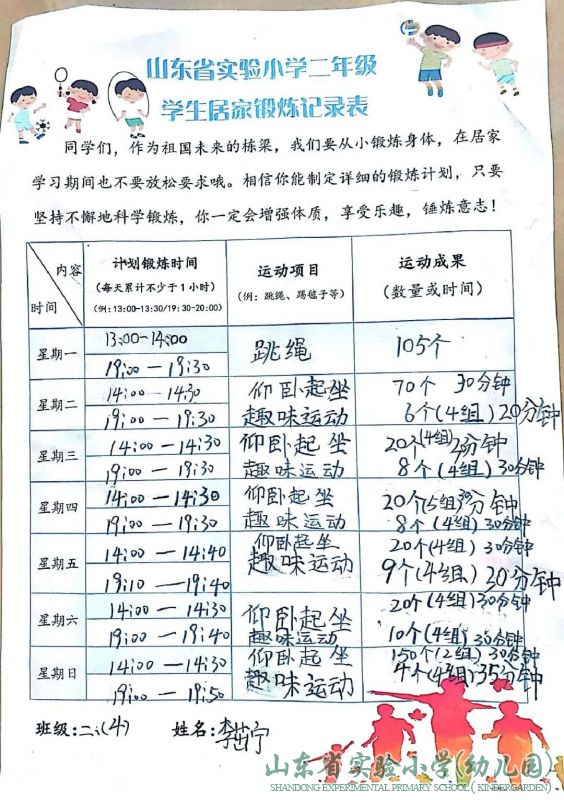 山东省实验小学二年级
学生居家锻炼记录表
同学们，作为祖国未来的栋梁，我们要从小锻炼身体，在居家
学习期间也不要放松要求哦。相信你能制定详细的锻炼计划，只要
坚持不懈地科学锻炼，你一定会增强体质，享受乐趣，锤炼意志！
内容 时间 计划锻炼时间 （每天累计不少于1小时） （例：13:00-13:30/19:30-20:00） 运动项目 （例：跳绳、踢毽子等） 运动成果 （数量或时间）
星期一 13:00-14:00 跳绳 105个
19:00-19:30
星期二 14:00-14:30 仰卧起坐 70个 30分钟
19:00-19:30 趣味运动 6个(4组)20分钟
星期三 14:00-14:30 仰卧起坐 20个(4组) 分钟
19:00-19:30 趣味运动 8个(4组)30分钟
星期四 14:00-14:30 仰卧起坐 20个(5组)30分钟
19:00-19:30 趣味运动 8个(4组)30分钟
星期五 14:00-14:40 仰卧起坐 20个(4组)30分钟
19:10-19:40 趣味运动 9个(4组)20分钟
星期六 14:00-14:30 仰卧起坐 20个(4组)30分钟
19:00-19:40 趣味运动 10个(4组)30分钟
星期日 14:00-14:30 仰卧起坐 150个(2组)30分钟
19:00-19:50 趣味运动 4个(4组)35分钟
班级:二、(4) 姓名:李
山东省实验小学(幼儿园)
SHANDONG EXPERIMENTAL PRIMARY SCHOOL ( KINDERGARDEN)